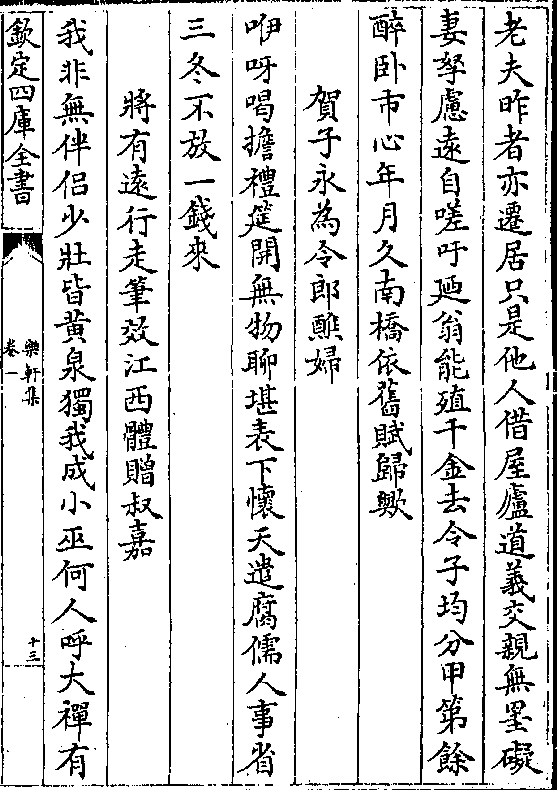 老夫昨者亦遷居只是他人借屋廬道義交親無墨礙
妻孥慮遠自嗟吁廼翁能殖千金去令子均分甲第餘
醉卧市心年月久南橋依舊賦歸歟
賀子永為令郎醮婦
咿呀唱擔禮筵開無物聊堪表下懷天遣腐儒人事省
三冬不放一錢來
將有遠行走筆效江西體贈叔嘉
我非無伴侣少壯皆黄泉獨我成小巫何人呼大禪有
欽定四庫全書
樂軒集
卷一
十三